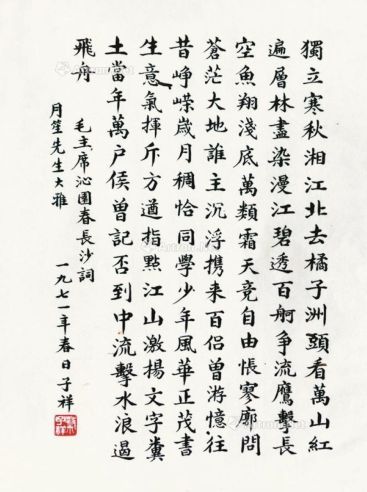 獨立寒秋湘江北去橘子洲頭看萬山紅
遍層林盡染漫江碧透百舸争流鷹擊長
空魚翔淺底萬類霜天竞自由悵寥廓問
蒼茫大地誰主沉浮携来百侣曾游憶往
昔崢嶸歲月稠恰同學少年風華正茂書
生意氣揮斥方遒指點江山激揚文字糞
土當年萬户侯曾記否到中流擊水浪遏
飛舟
毛主席沁園春長沙詞
月笙先生大雅
一九七一年春日子祥